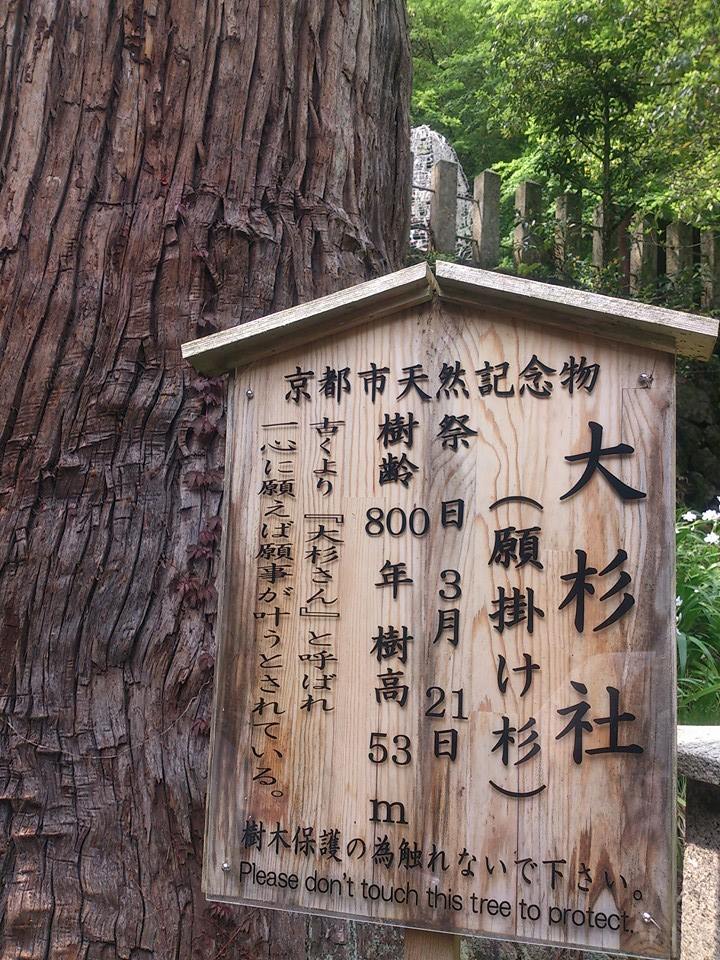 京都市天然記念物
大杉社
（願掛け杉）
祭日 3月21日
樹齢800年 樹高53m
古くより『大杉さん』と呼ばれ
一心に願えば願事が叶うとされている。
樹木保護の為触れないで下さい。
Please don't touch this tree to protect.